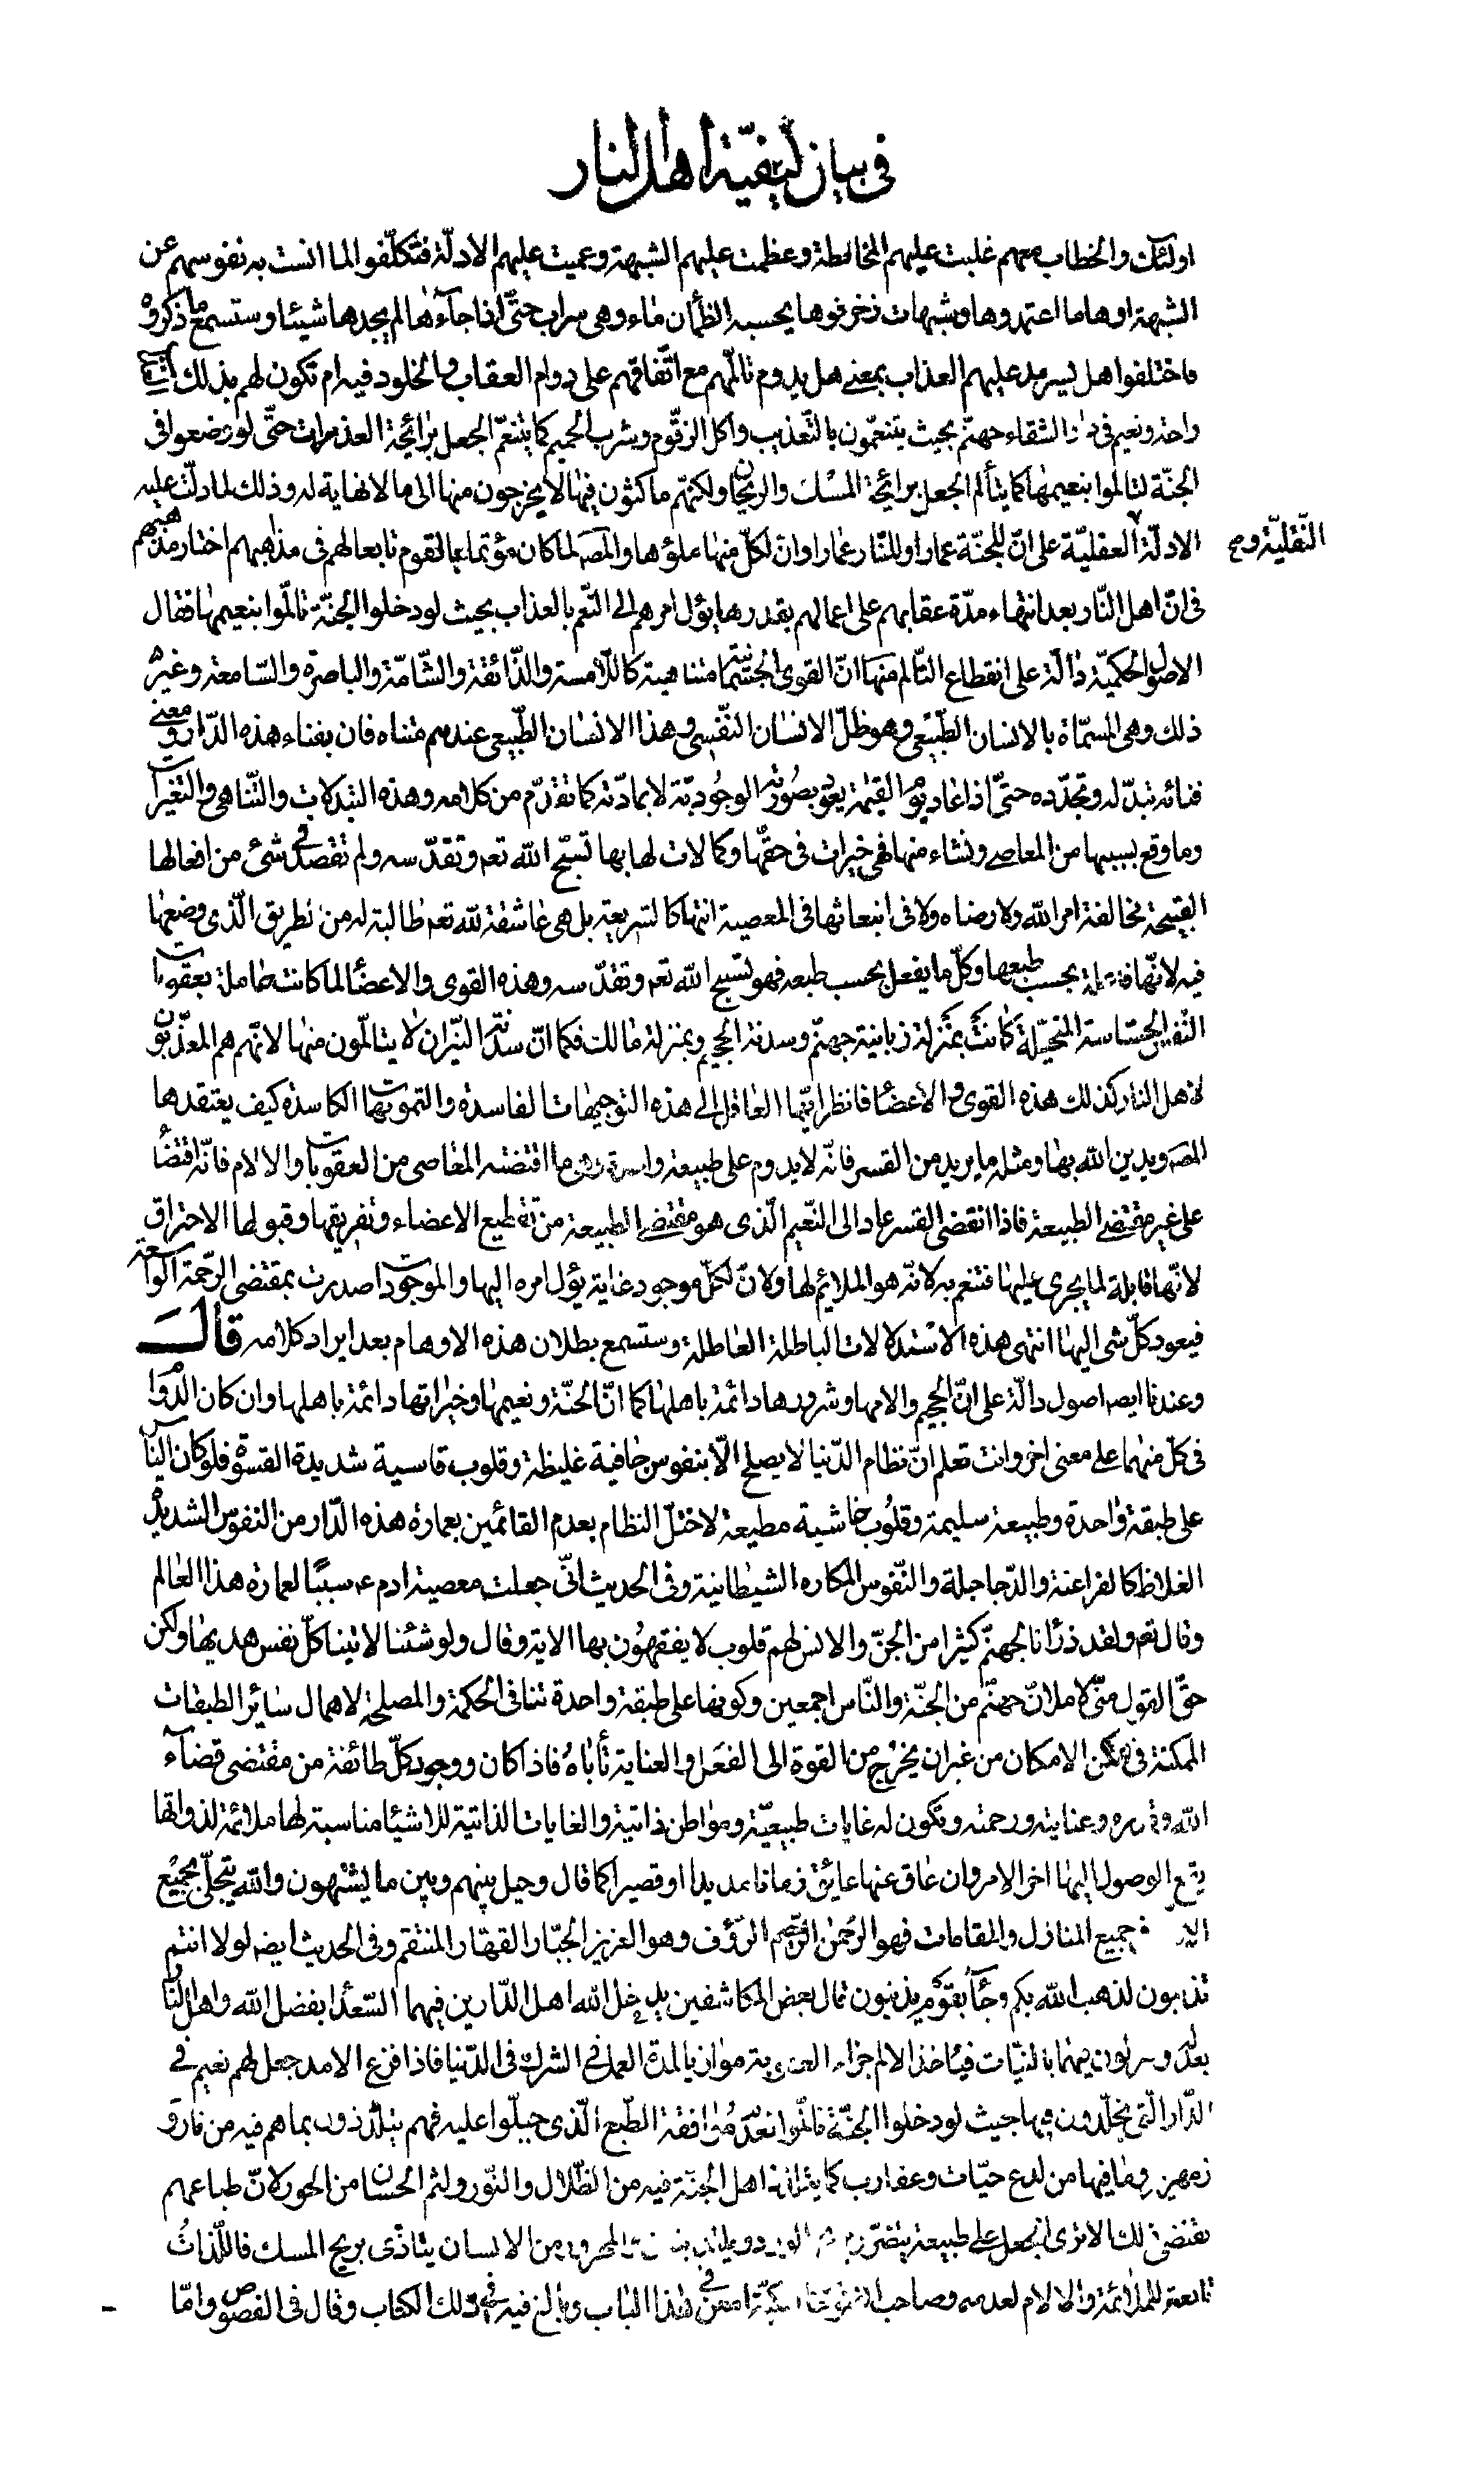 في بيان كيفية اهل النار
اولئك والخطاب معهم غلبت عليهم المخالطة وعظمت عليهم الشبهة وعميت عليهم الادلّة فتكلّفوا لما انست به نفوسهم عن
الشبهة اوهاما اعتمدوها وشبهات زخرفوها يحسبه الظمأن ماء وهى سراب حتّى اذا جآءها لم يجدها شيئا وستسمع ما ذكروه
فاختلفوا هل يسرمد عليهم العذاب بمعنى هل يدوم تالّمهم مع اتّفاقهم على دوام العقاب والخلود فيه ام تكون لهم بذلك
راحة ونعيم فى دار الشقاء جهنّم بحيث يتنعمّون بالتّعذيب واكل الزقّوم وشرب الحميم كما يتنعّم الجعل برائحة العذرات حتّى لو وضعوا فى
الجنّة لتالّموا بنعيمها كما يتألم الجعل برائحة المسك والريحان ولكنّهم ماكثون فيها لا يخرجون منها الى ما لا نهاية له وذلك لما دلّت عليه
الادلّة العقليّة على انّ للجنّة عمارا وللنّار عمارا وانّ لكلّ منها ملؤها والمصه لما كان مؤتما بالقوم تابعا لهم فى مذاهبهم اختار مذهبهم
النّقليّة وح
فى انّ اهل النّار بعد انتهاء مدّة عقابهم على اعمالهم بقدرها يؤل امرهم الى التنعّم بالعذاب بحيث لو دخلوا الجنّة تالّموا بنعيمها فقال
الاصول الحكميّة دالّة على انقطاع التّالم منها انّ القوى الجسمانيّة متناهية كاللّامسة والذّائقة والشّامّة والباصرة والسّامعة وغير
ذلك وهى المسمّاة بالانسان الطّبيعى وهو ظلّ الانسان النّفسى وهذا الانسان الطّبيعى عندهم متناه فان بفناء هذه الدّار ومعنى
فنائه تبدّله وتجدّده حتّى اذا عاد يوم القيمة يعود بصورته الوجُوديّة لا بمادّته كما تقدّم من كلامه وهذه التبدلات والتّناهى والتّغيّرات
وما وقع بسببها من المعاصى ونشاء منها فهى خيرات فى حقّها وكمالات لها بها تسبّح اللّه تعه وتقدّسه ولم تقصد فى شئ من افعالها
القبيحة مخالفة امر اللّه ولا رضاه ولا فى انبعاثها فى المعصية انتهاكا لشريعته بل هى عاشقة للّه تعه طالبة له من الطريق الّذى وضعها
فيه لانّها بحسب طبعها وكلّ ما يفعل بحسب طبعه فهو تسبيح اللّه تعه وتقدّسه وهذه القوى والاعضاء لما كانت حاملة بعقوبات
النّفس الحسّاسة المتخيّلة كانت بمنزلة زبانية جهنّم وسدنة الجحيم وبمنزلة مالك فكما انّ سدنة النّيران لا يتالّمون منها لانّهم هم المعذّبون
لاهل النار كذلك هذه القوى والاعضاء فانظر ايّها العاقل الى هذه التوجيهات الفاسدة والتمويهات الكاسدة كيف يعتقدها
المصه ويدين اللّه بها ومثله ما يريد من القسر فانّه لا يدوم على طبيعة ما اقتضته المعاصى من العقوبات والالام فانّه اقتضاء
على غير مقتضى الطبيعة فاذا انقضى القسر عاد الى النّعيم الّذى هو مقتضى الطبيعة من تقطيع الاعضاء وتفريقها وقبولها الاحتراق
لانّها قابلة لما يجرى عليها فتنعم به لانّه هو الملائم لها ولانّ لكلّ موجود غاية يؤل امره اليها والموجودات صدرت بمقتضى الرّحمة الواسعة
فيعود كلّ شى اليها انتهى هذه الاستدلالات الباطلة العاطلة وستسمع بطلان هذه الاوهام بعد ايراد كلامه قال
وعندنا ايضه اصول دالّة على انّ الجحيم والامها وشرورها دائمة باهلها كما انّ الجنّة ونعيمها وخيراتها دائمة باهلها وان كان الدّوام
فى كلّ منهما على معنى اخر وانت تعلم انّ نظام الدّنيا لا يصلح الّا بنفوس جافية غليظة وقلوب قاسية شديدة القسوة فلو كان النّاس
على طبقة واحدة وطبيعة سليمة وقلُوب خاشية مطيعة لاختلّ النظام بعدم القائمين بعمارة هذه الدّار من النفوس الشديدة
الغلاظ كالفراعنة والدّجاجلة والنّفوس المكاره الشيطانية وفى الحديث انّى جعلت معصية ادم عه سببًا لعمارة هذا العالم
وقال تعه ولقد ذرأنا لجهنّم كثيرا من الجنّ والانس لهم قلوب لا يفقهُون بها الاية وقال ولو شئنا لاتينا كلّ نفس هديها ولكن
حقّ القول منّى لاملانّ جهنّم من الجنّة والنّاس اجمعين وكونها على طبقة واحدة تنافى الحكمة والمصلحة لاهمال سائر الطبقات
الممكنة فى مكمن الامكان من غير ان يخرج من القوة الى الفعل والعناية تأباهُ فاذا كان ووجود كلّ طائفة من مقتضى قضآء
اللّه وقدره وعنايته ورحمته وتكون له غايات طبيعيّة ومواطن ذاتية والغايات الذاتية للاشيا مناسبة لها ملائمة لذواتها
يقع الوصول اليها اخر الامر وان عاق عنها عايق زمانا مديدا او قصيرا كما قال وحيل بينهم وبين ما يشتهون واللّه يتجلّى بجميع
جميع المنازل والمقامات فهو الرّحمٰن الرّحيم الرّؤف وهو العزيز الجبّار القهّار المنتقم وفى الحديث ايضه لولا انتم
تذنبون لذهب اللّه بكم وجآء بقوم يذنبون قال بعض المكاشفين يدخل اللّه اهل الدّارين فيهما السّعداء بفضل اللّه واهل النّار
بعدله فيهما بالنيّات فيأخذ الالم جزاء العقوبة موازيا لمدة العمل فى الشرك فى الدّنيا فاذا فزع الامد جعل لهم نعيم فى
الدّار الّتى يخلّدون فيها حيث لو دخلوا الجنّة تالّموا لعدم موافقة الطّبع الّذى جبلّوا عليه فهم يتلذّذون بما هم فيه من نار و
زمهرير وما فيها من لدع حيّات وعقارب كما يتلذذ اهل الجنّة فيه من الظّلال والنّور ولثم الحسان من الحور لانّ طباعهم
تقتضى ذلك الا ترى الجعل على طبيعة يتضرّر المحرور من الانسان يتأذّى بريح المسك فاللّذات
تابعة للملائمة والالام لعدمه وصاحب الفتوحات امعن فى هذا الباب وبالغ فيه فى ذلك الكتاب وقال فى الفصوص وامّا